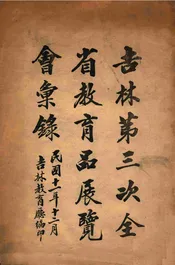 吉林第三次全
省教育品展覽
會彙錄
民國十一年十二月
吉林教育廳編印